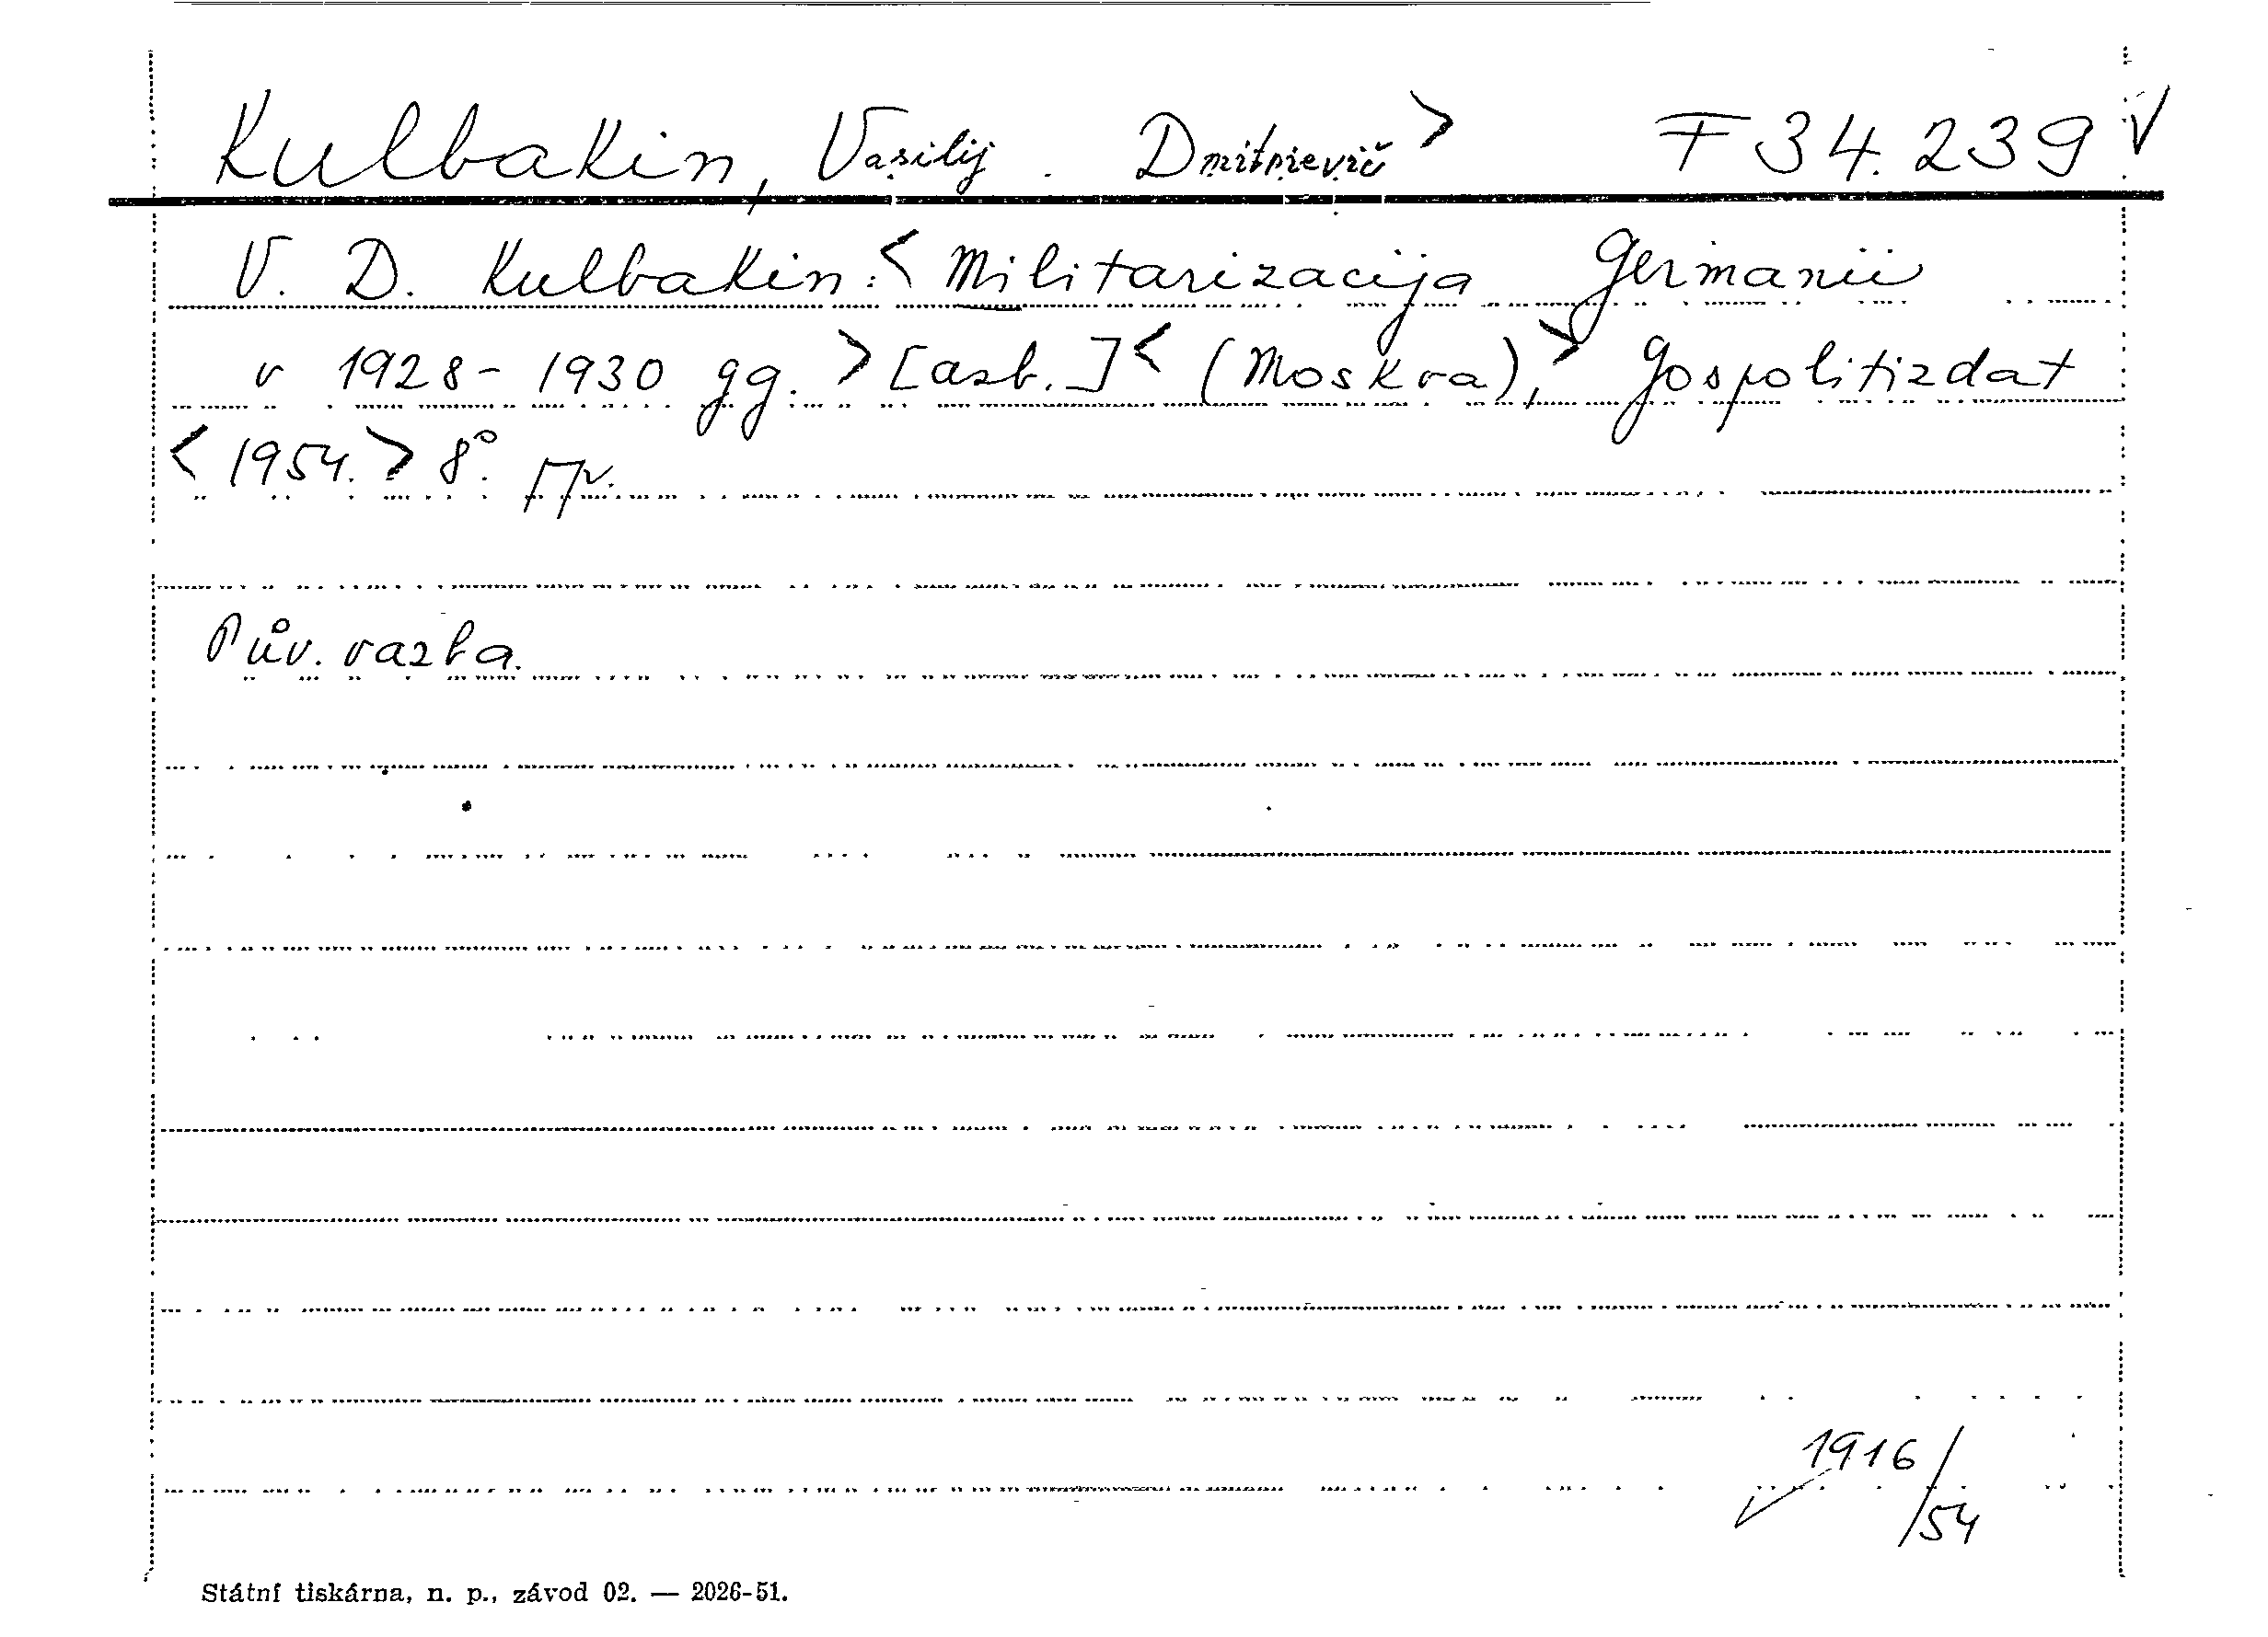 Kulbakin, Vasilij Dmitrievič > F 34.239 V
V. D. Kulbakin: < Militarizacija Germanii
v 1928 - 1930 gg. > [azb.] < (Moskva), > Gospolitizdat
< 1954. > 8°.
Pův. vazba.
1916/54
Státní tiskárna, n. p., závod 02. — 2026-51.